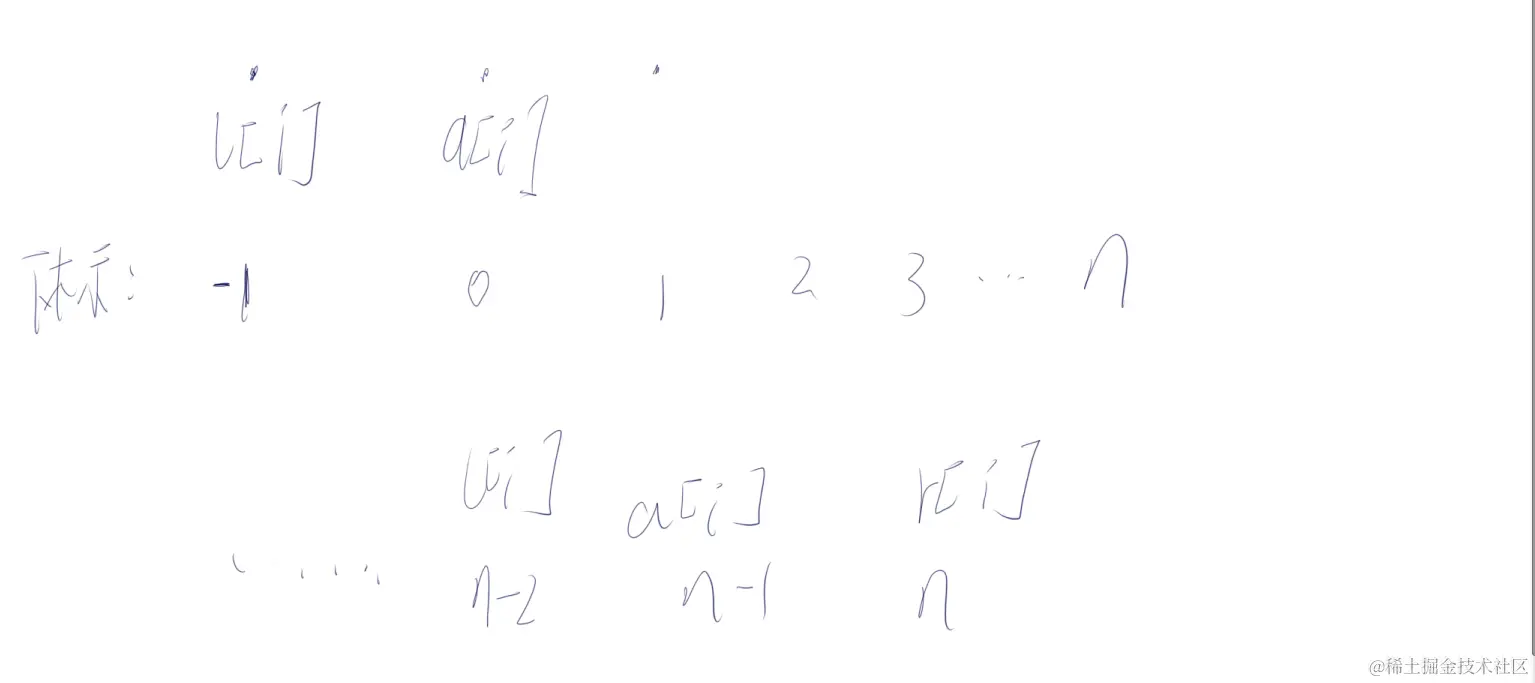 l[i] a[i]
下标: -1 0 1 2 3 ... n
l[i] a[i] r[i]
..... n-2 n-1 n
@稀土掘金技术社区